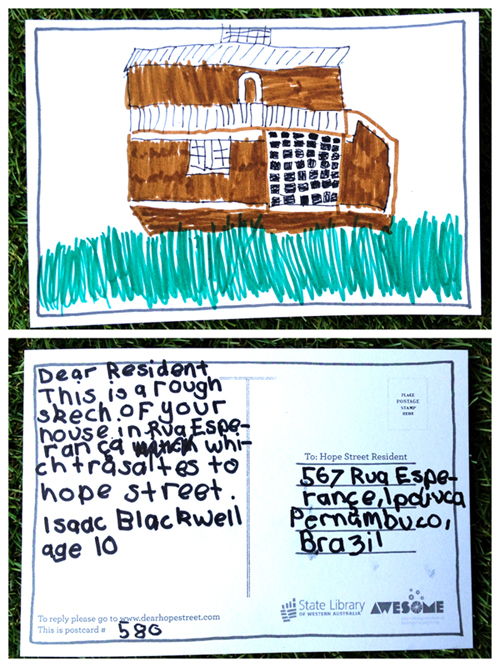 Dear Resident
This is a rough
skech of your
house in Rua Espe-
rança whi-
ch trasaltes to
hope street.
Isaac Blackwell
age 10
To reply please go to www.dearhopestreet.com
This is postcard # 580
PLACE
POSTAGE
STAMP
HERE
To: Hope Street Resident
567 Rua Espe-
rançe, Ipojuca
Pernambuco,
Brazil
State Library
OF WESTERN AUSTRALIA
AWESOME